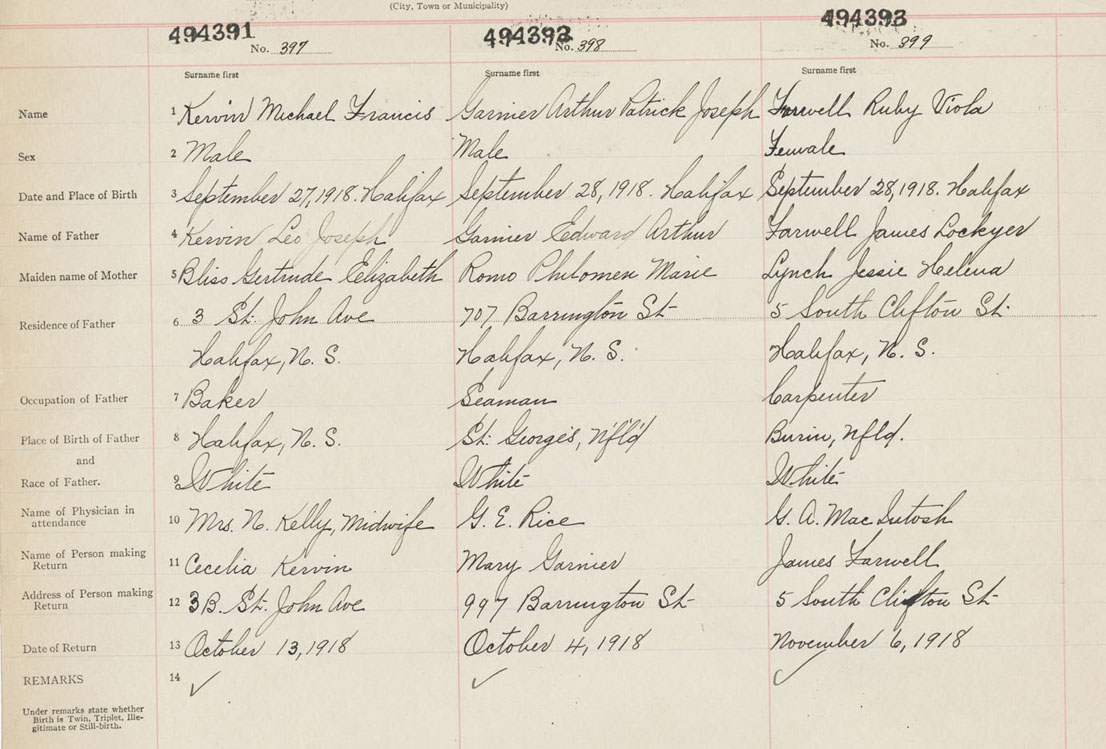 (City, Town or Municipality)
494391 494392 494393
No. 397 No. 398 No. 399
Surname first Surname first Surname first
Name 1 Kervin Michael Francis Garnier Arthur Patrick Joseph Farwell Ruby Viola
Sex 2 Male Male Female
Date and Place of Birth 3 September 27, 1918. Halifax September 28, 1918. Halifax September 28, 1918. Halifax
Name of Father 4 Kervin Leo Joseph Garnier Edward Arthur Farwell James Lockyer
Maiden name of Mother 5 Bliss Gertrude Elizabeth Romo Philomen Marie Lynch Jessie Helena
Residence of Father 6 3 St. John Ave 707 Barrington St. 5 South Clifton St.
Halifax, N. S. Halifax, N. S. Halifax, N. S.
Occupation of Father 7 Baker Seaman Carpenter
Place of Birth of Father 8 Halifax, N. S. St. George's, Nfld Burin, Nfld.
and
Race of Father. 9 White White White
Name of Physician in attendance 10 Mrs. N. Kelly, Midwife G. E. Rice G. A. MacIntosh
Name of Person making Return 11 Cecelia Kervin Mary Garnier James Farwell
Address of Person making Return 12 3B. St. John Ave 997 Barrington St. 5 South Clifton St.
Date of Return 13 October 13, 1918 October 4, 1918 November 6, 1918
REMARKS 14 ✓ ✓ ✓
Under remarks state whether
Birth is Twin, Triplet, Ille-
gitimate or Still-birth.